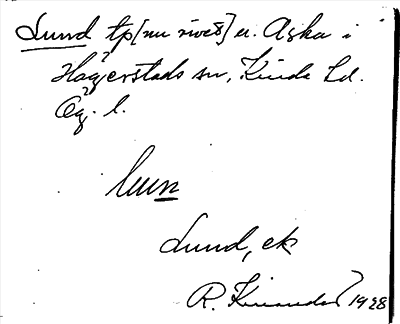 Lund tp [nu rivet] u. Aska i
Hägerstads sn, Kinda hd.
Ög. l.
lunn
Lund, ek
R. Kinander 1928